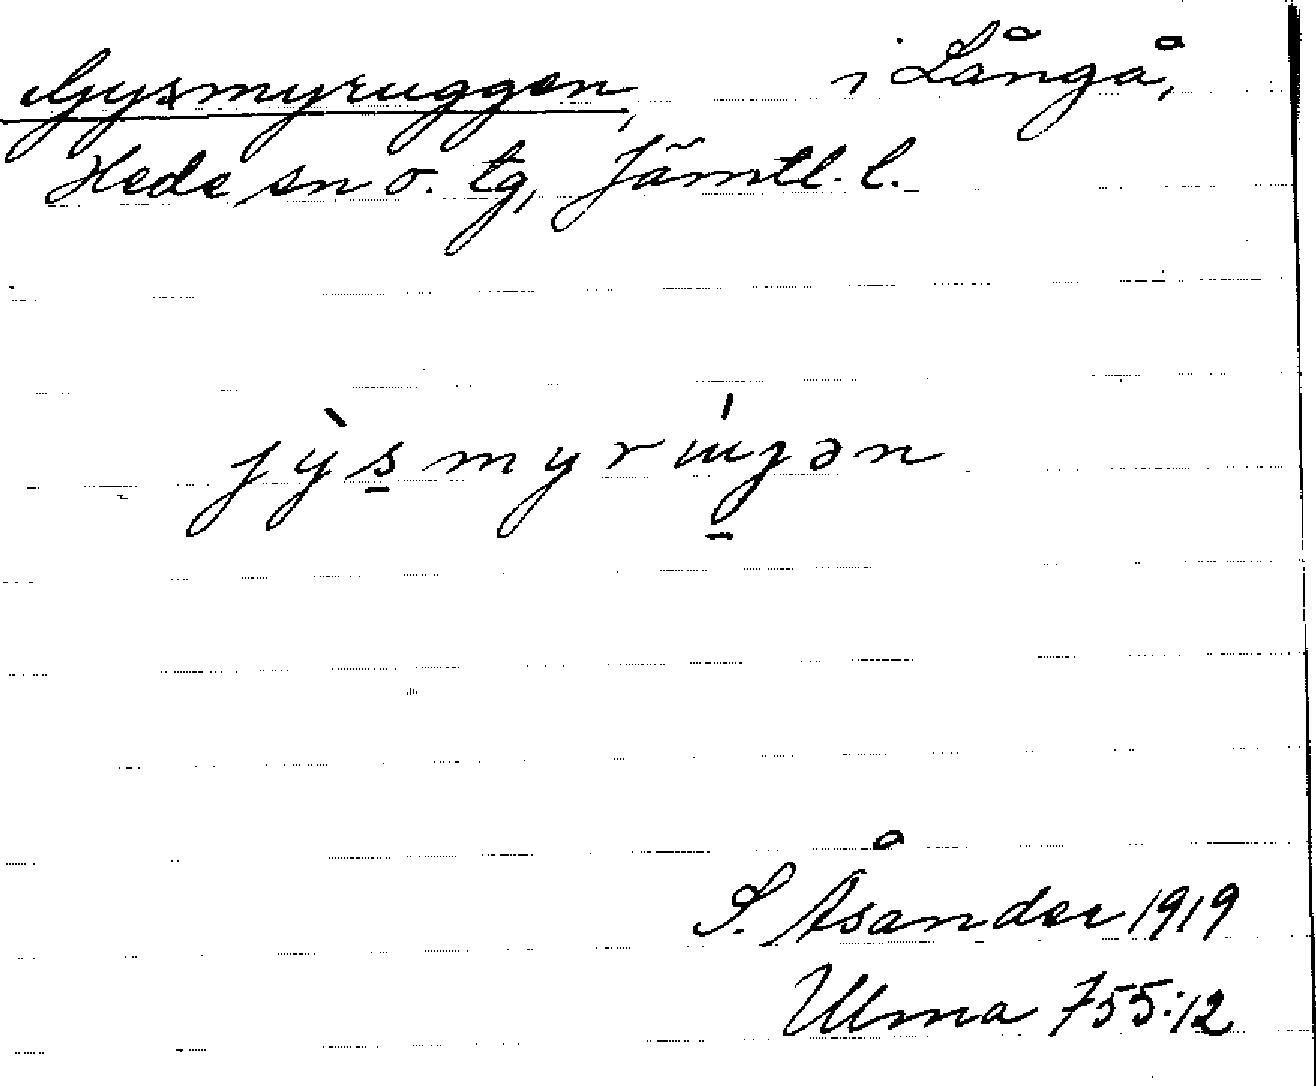 Gysmyruggen, i Långå,
Hede sn o. tg, Jämtl. l.
S. Åsander 1919
Ulma 755:12